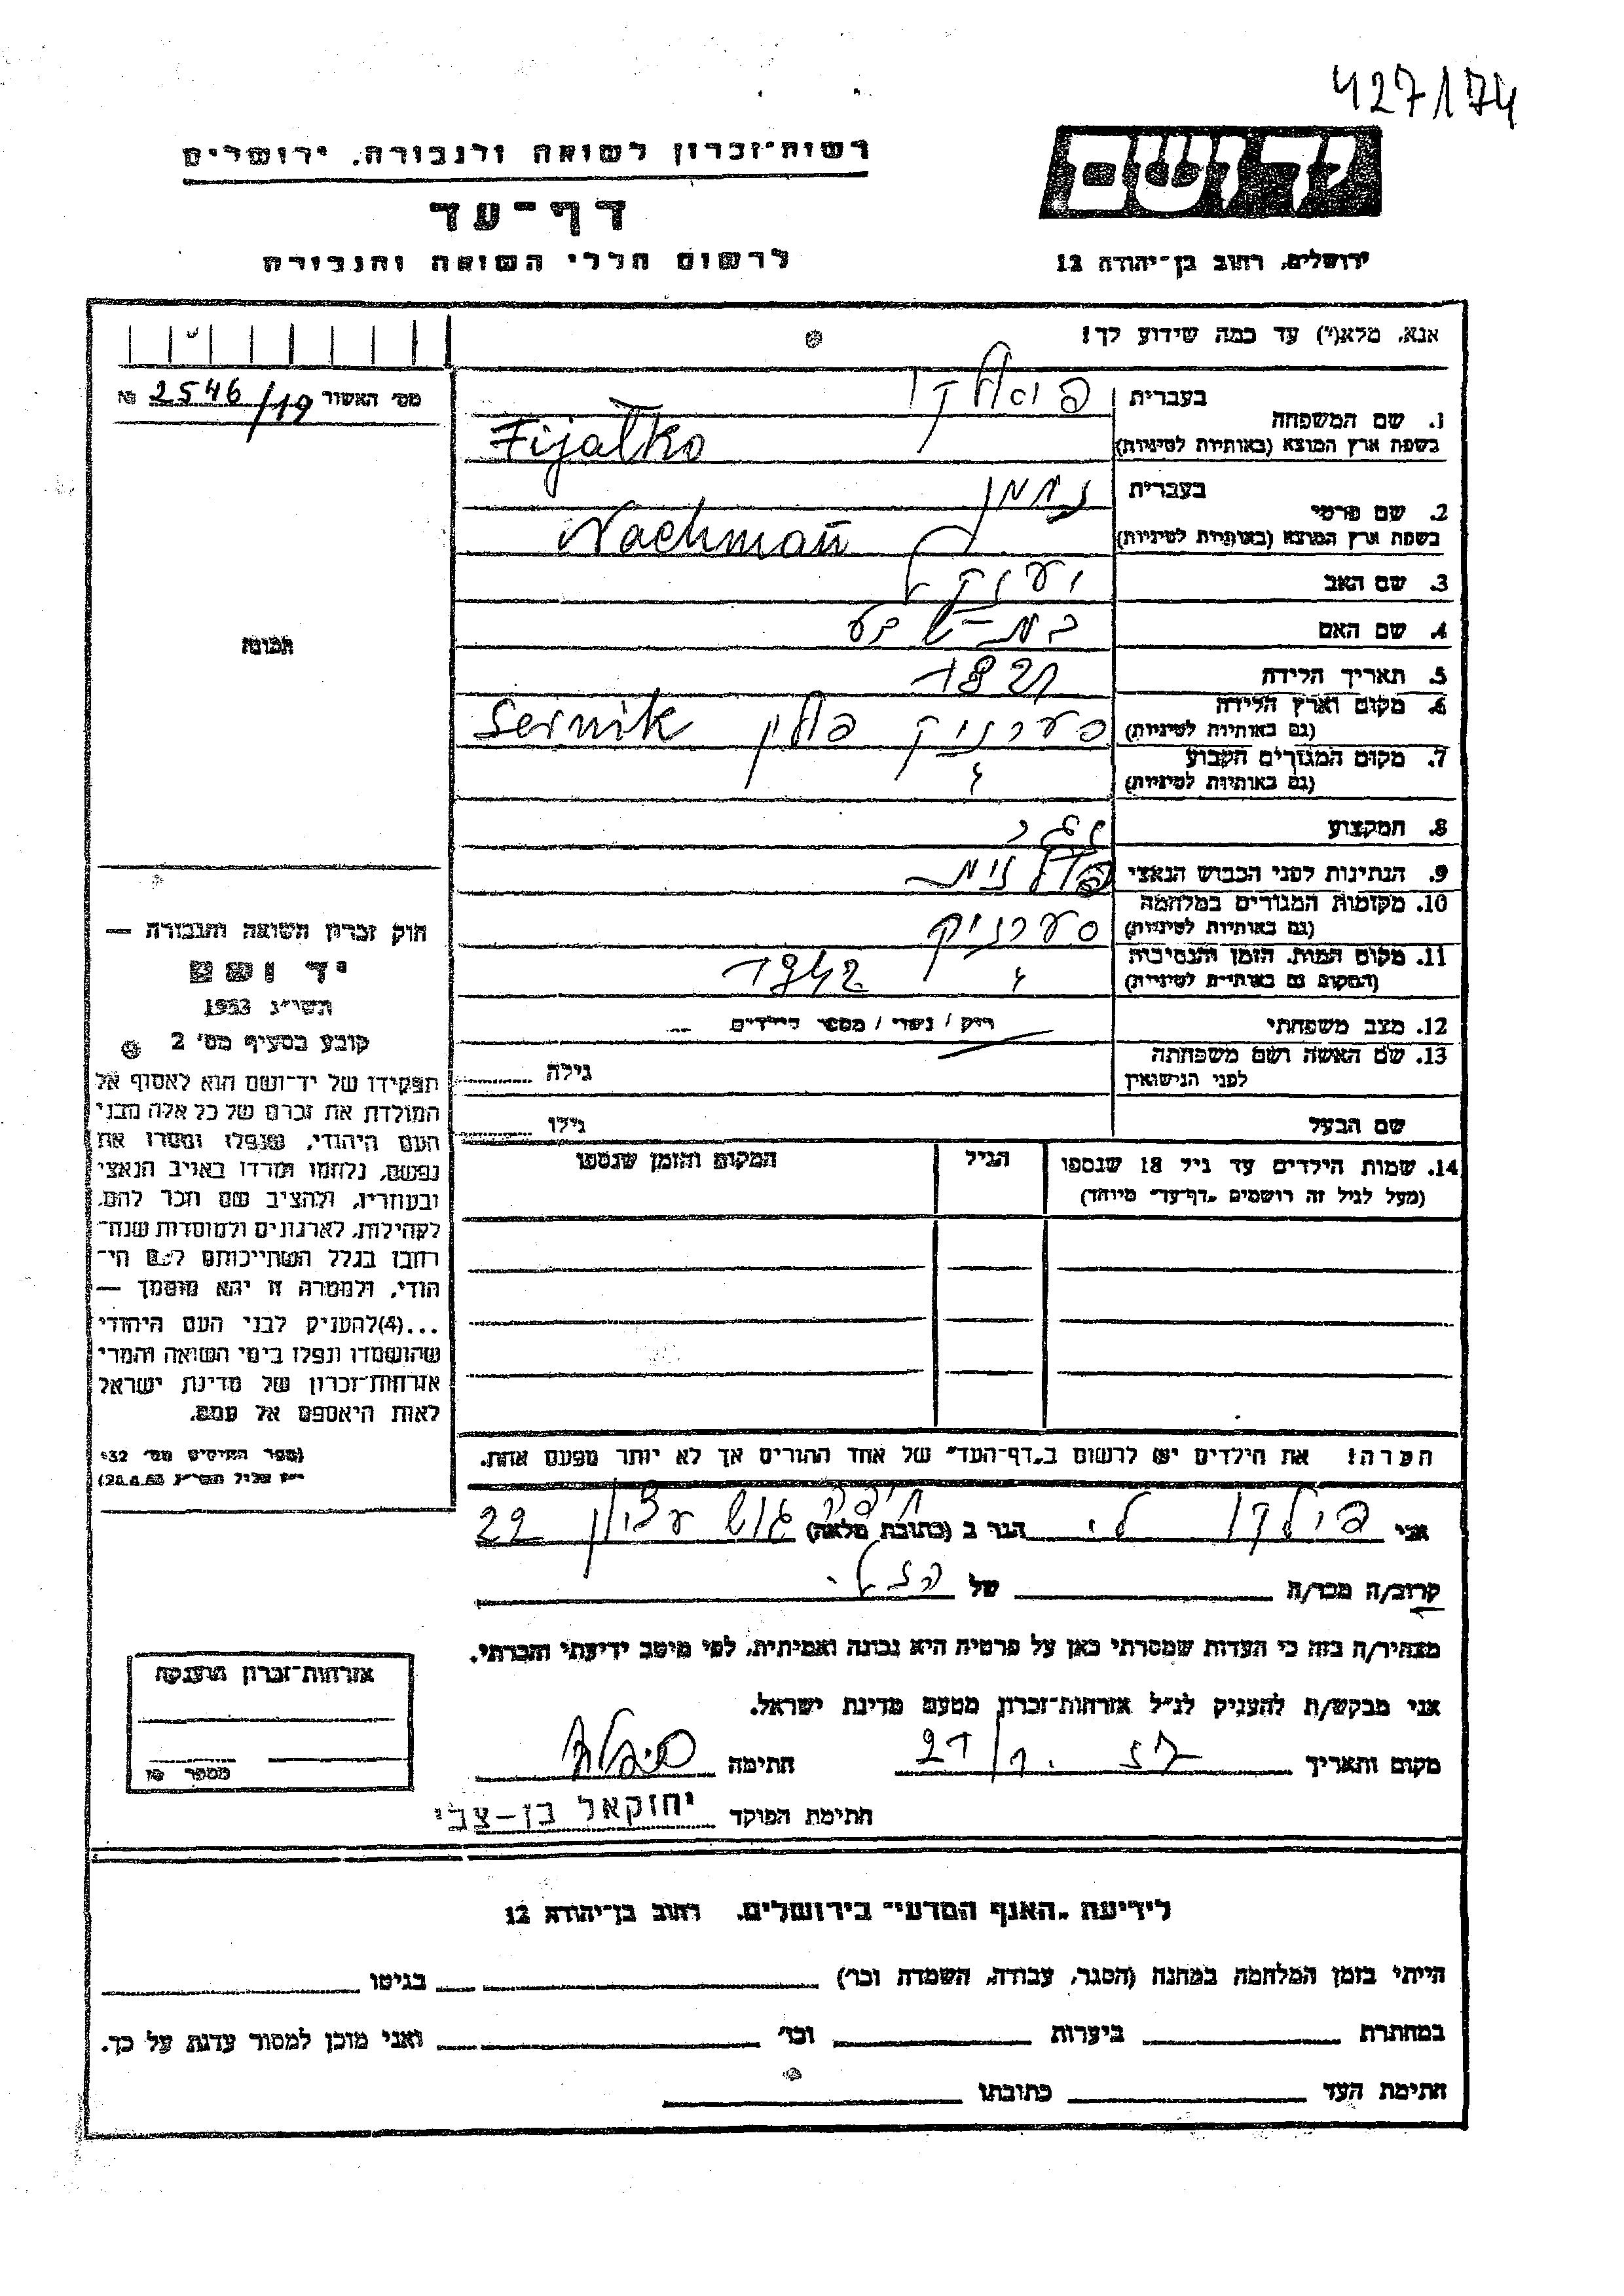 427174
רשות־זכרון לשואה ולגבורה, ירושלים
יד ושם
דף־עד
לרשום חללי השואה והגבורה
ירושלים, רחוב בן־יהודה 12
אנא, מלא(י) עד כמה שידוע לך!
מס׳ האשור 2546/19 №
1. שם המשפחה
בעברית
בשפת ארץ המוצא (באותיות לטיניות) Fijałko
2. שם פרטי
בעברית נחמן
בשפת ארץ המוצא (באותיות לטיניות) Nachman
3. שם האב
4. שם האם בת-שבע
5. תאריך הלידה
6. מקום וארץ הלידה
(גם באותיות לטיניות) סערניק פולין Sernik
7. מקום המגורים הקבוע
(גם באותיות לטיניות)
8. המקצוע
9. הנתינות לפני הכבוש הנאצי פולנית
10. מקומות המגורים במלחמה
(גם באותיות לטיניות) סערניק
11. מקום המות, הזמן והנסיבות
(המקום גם באותיות לטיניות) 1942
12. מצב משפחתי רוק / נשוי / מספר הילדים
13. שם האשה ושם משפחתה
לפני הנישואין
גילה
שם הבעל
גילו
14. שמות הילדים עד גיל 18 שנספו
(מעל לגיל זה רושמים „דף־עד״ מיוחד)
הגיל
המקום והזמן שנספו
הערה! את הילדים יש לרשום ב„דף־העד״ של אחד ההורים אך לא יותר מפעם אחת.
תמונה
חוק זכרון השואה והגבורה —
יד ושם
תשי״ג 1953
קובע בסעיף מס׳ 2
תפקידו של יד־ושם הוא לאסוף אל
המולדת את זכרם של כל אלה מבני
העם היהודי, שנפלו ומסרו את
נפשם, נלחמו ומרדו באויב הנאצי
ובעוזריו, ולהציב שם וזכר להם,
לקהילות, לארגונים ולמוסדות שנח־
רבו בגלל השתייכותם לעם הי־
הודי, ולמטרה זו יהא מוסמך —
...(4)להעניק לבני העם היהודי
שהושמדו ונפלו בימי השואה והמרי
אזרחות־זכרון של מדינת ישראל
לאות היאספם אל עמם.
(ספר החוקים מס׳ 132
(28.8.53
אני הגר ב (כתובת מלאה) חיפה גוש עציון 22
קרוב/ה מכר/ה של
מצהיר/ה בזה כי העדות שמסרתי כאן על פרטיה היא נכונה ואמיתית, לפי מיטב ידיעתי והכרתי.
אני מבקש/ת להעניק לנ״ל אזרחות־זכרון מטעם מדינת ישראל.
מקום ותאריך חתימה
חתימת הפוקד יחזקאל בן-צבי
אזרחות־זכרון הוענקה
מספר
לידיעת „האגף המדעי״ בירושלים, רחוב בן־יהודה 12
הייתי בזמן המלחמה במחנה (הסגר, עבודה, השמדה וכו׳) בגיטו
במחתרת ביערות וכו׳ ואני מוכן למסור עדות על כך.
חתימת העד כתובתו